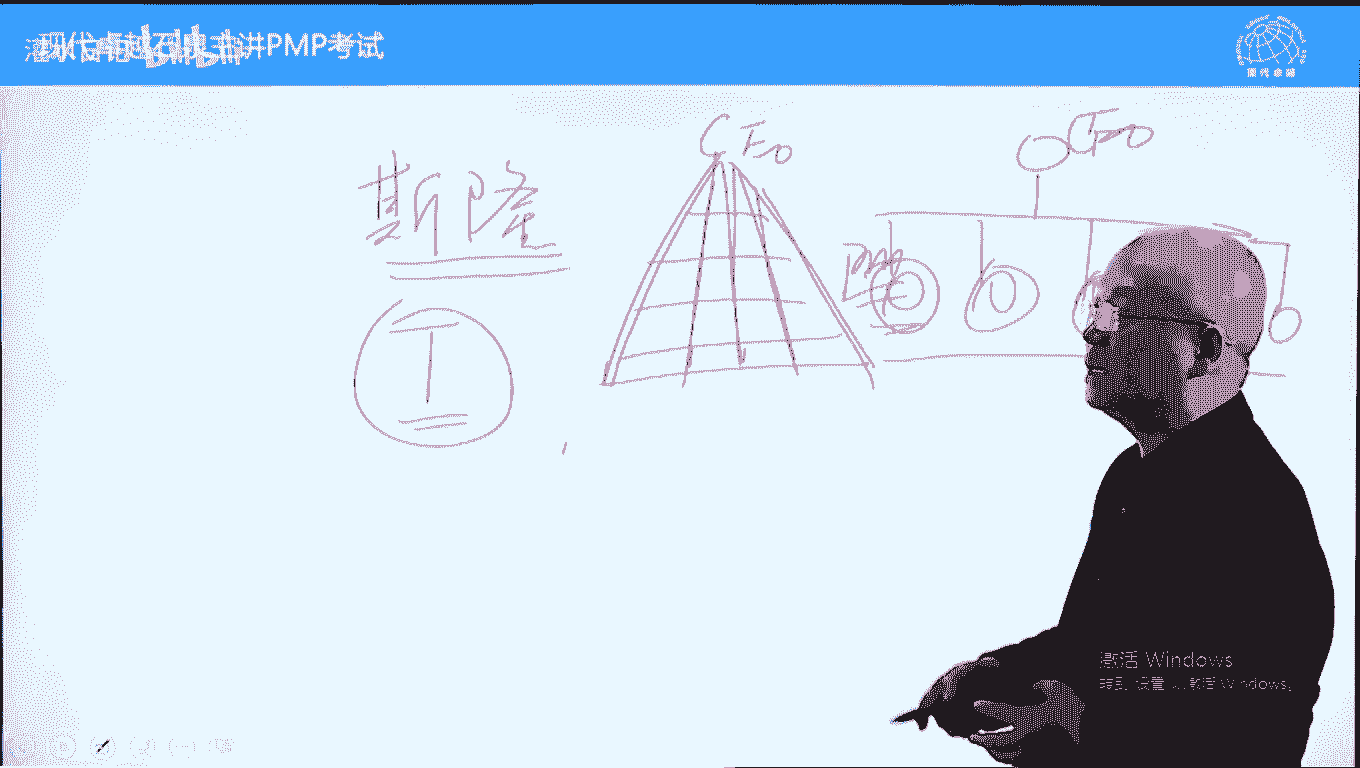 讲PMP考试
现代卓越
斯隆
CFO
CFO
PM
工
激活 Windows
转到"设置"以激活 Windows。